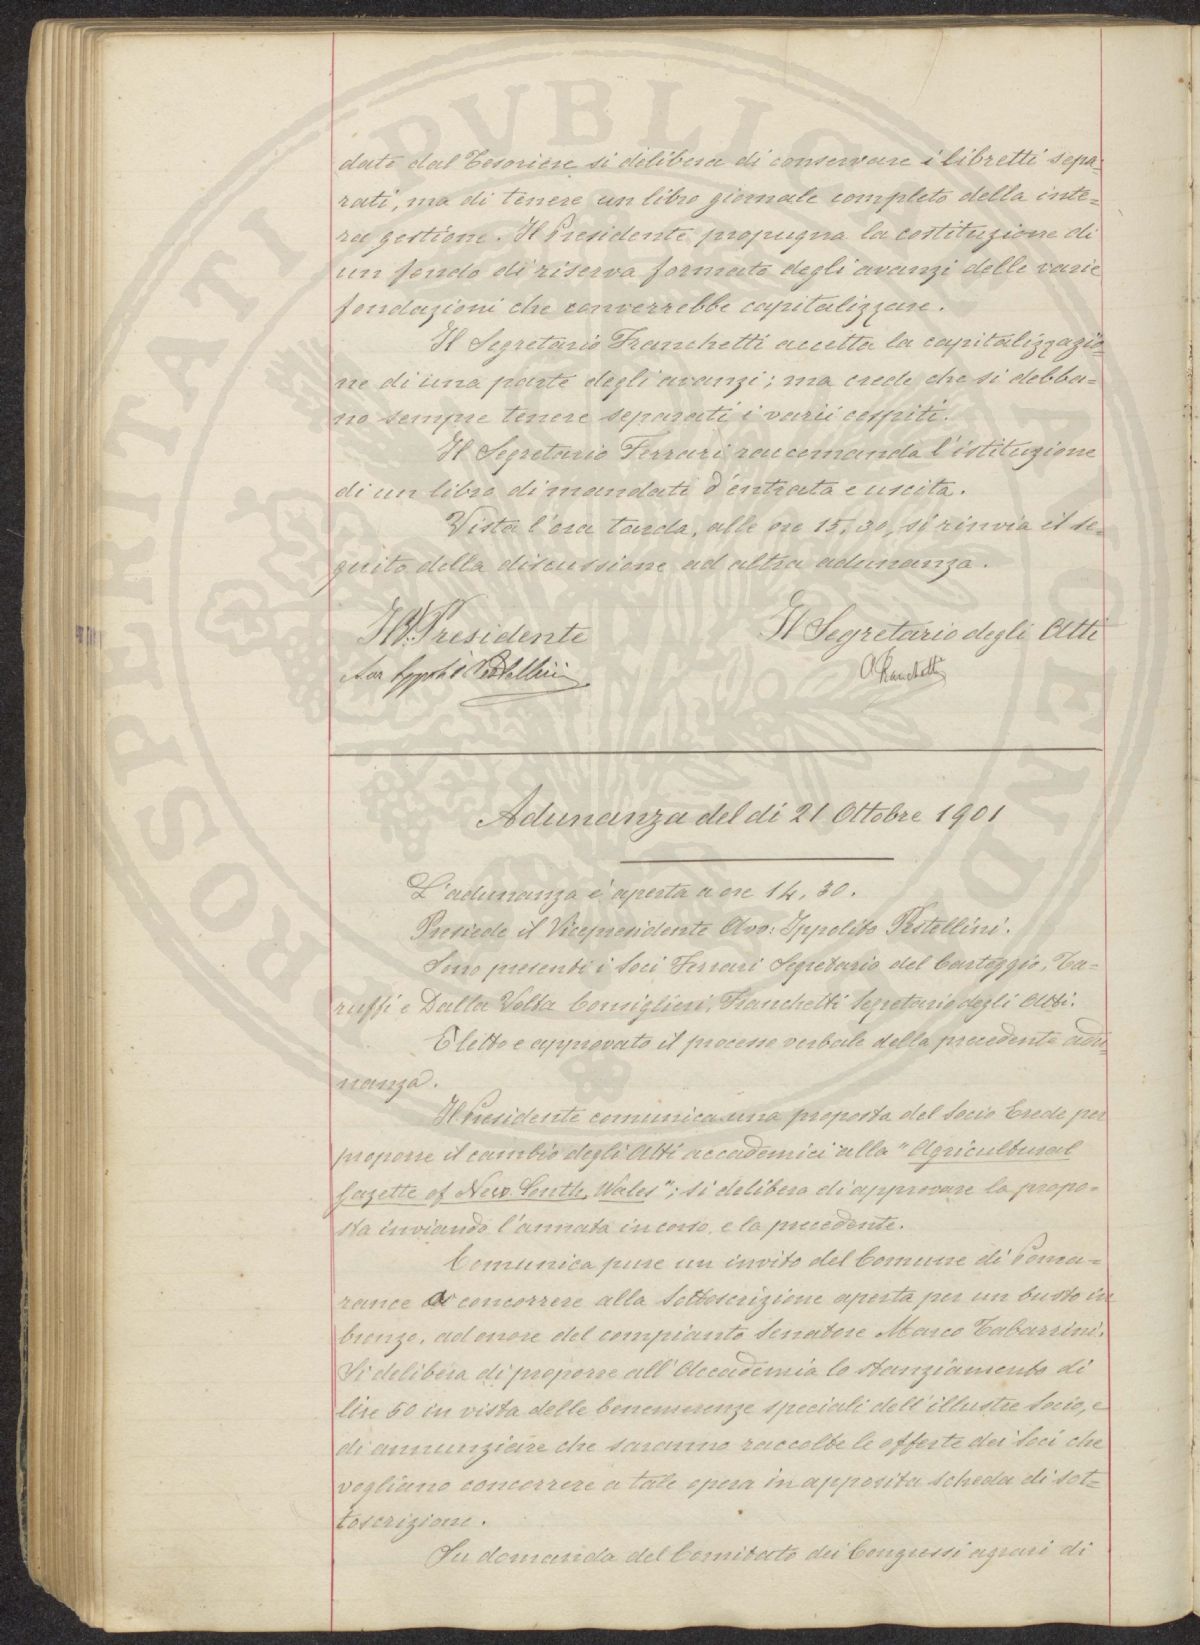 dato dal Tesoriere si delibera di conservare i libretti sepa-
rati, ma di tenere un libro giornale completo della inte-
ra gestione. Il Presidente propugna la costituzione di
un fondo di riserva formato degli avanzi delle varie
fondazioni che converrebbe capitalizzare.
Il Segretario Franchetti accetta la capitalizzazio-
ne di una parte degli avanzi; ma crede che si debba-
no sempre tenere separati i varii cespiti.
Il Segretario Ferrari raccomanda l'istituzione
di un libro di mandati d'entrata e uscita.
Vista l'ora tarda, alle ore 15,30, si rinvia il se-
guito della discussione ad altra adunanza.
Il V. Presidente Il Segretario degli Atti
Avv Ippolito Pestellini A Franchetti
Adunanza del dì 21 Ottobre 1901
L'adunanza è aperta a ore 14,30.
Presiede il Vicepresidente Avv: Ippolito Pestellini.
Sono presenti i Soci Ferrari Segretario del Carteggio, Ta-
ruffi e Dalla Volta Consiglieri, Franchetti Segretario degli Atti.
È letto e approvato il processo verbale della precedente adu-
nanza.
Il Presidente comunica una proposta del Socio Erede per
proporre il cambio degli Atti accademici alla "Agricultural
Gazette of New South Wales"; si delibera di approvare la propo-
sta inviando l'annata in corso e la precedente.
Comunica pure un invito del Comune di Poma-
rance a concorrere alla Sottoscrizione aperta per un busto in
bronzo, ad onore del compianto Senatore Marco Tabarrini.
Si delibera di proporre all'Accademia lo stanziamento di
lire 50 in vista delle benemerenze speciali dell'illustre Socio, e
di annunziare che saranno raccolte le offerte dei Soci che
vogliano concorrere a tale opera in apposita scheda di sot-
toscrizione.
Su domanda del Comitato dei Congressi agrari di